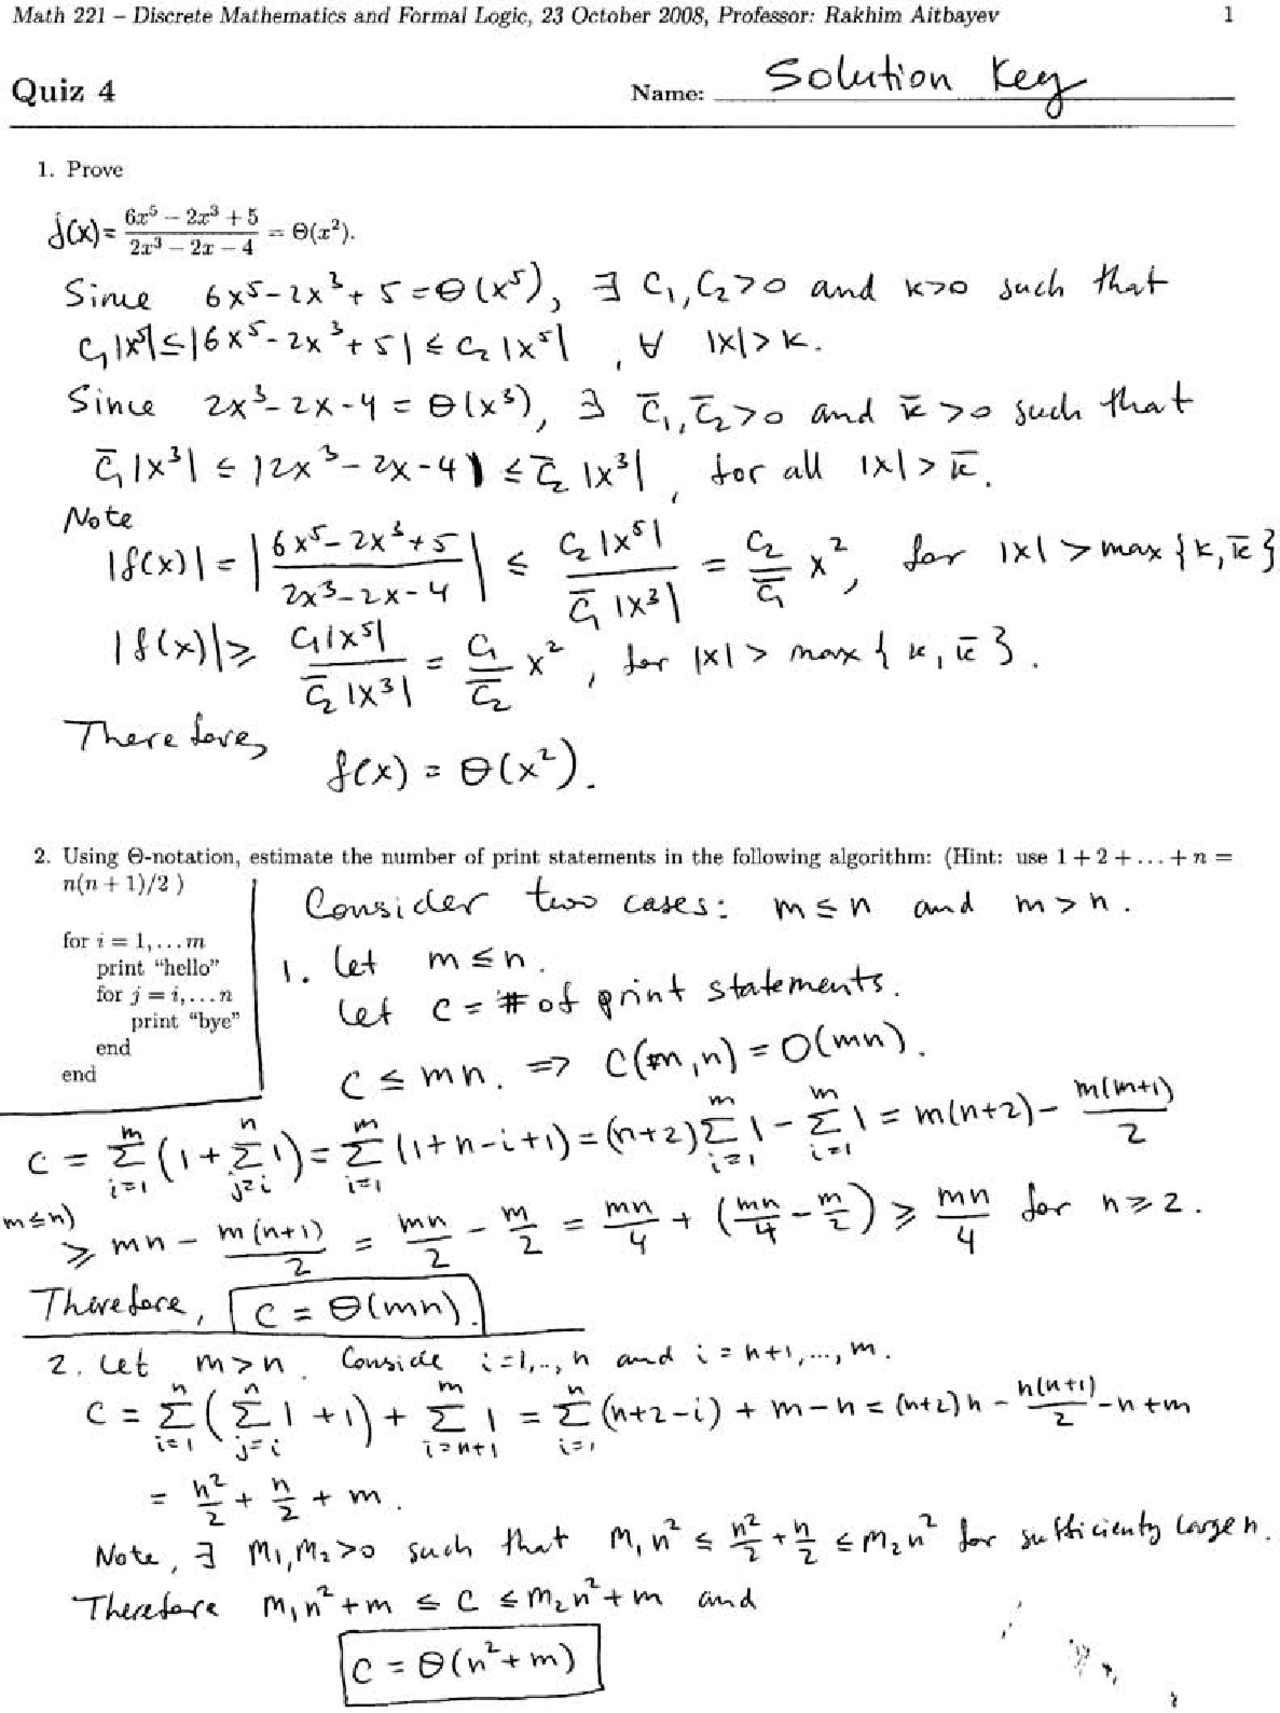 Math 221 – Discrete Mathematics and Formal Logic, 23 October 2008, Professor: Rakhim Aitbayev 1
Quiz 4 Name: Solution Key
1. Prove
f(x) = (6x⁵ − 2x³ + 5)/(2x³ − 2x − 4) = Θ(x²).
Since 6x⁵ − 2x³ + 5 = Θ(x⁵), ∃ C₁, C₂ > 0 and k > 0 such that
C₁|x⁵| ≤ |6x⁵ − 2x³ + 5| ≤ C₂|x⁵|, ∀ |x| > k.
Since 2x³ − 2x − 4 = Θ(x³), ∃ C̄₁, C̄₂ > 0 and k̄ > 0 such that
C̄₁|x³| ≤ |2x³ − 2x − 4| ≤ C̄₂|x³|, for all |x| > k̄.
Note
|f(x)| = |(6x⁵ − 2x³ + 5)/(2x³ − 2x − 4)| ≤ C₂|x⁵|/(C̄₁|x³|) = (C₂/C̄₁) x², for |x| > max{k, k̄}
|f(x)| ≥ C₁|x⁵|/(C̄₂|x³|) = (C₁/C̄₂) x², for |x| > max{k, k̄}.
Therefore,
f(x) = Θ(x²).
2. Using Θ-notation, estimate the number of print statements in the following algorithm: (Hint: use 1 + 2 + ... + n =
n(n + 1)/2 )
for i = 1, ... m
print "hello"
for j = i, ... n
print "bye"
end
end
Consider two cases: m ≤ n and m > n.
1. Let m ≤ n.
Let C = # of print statements.
C ≤ mn. ⇒ C(m,n) = O(mn).
C = Σ_{i=1}^{m} (1 + Σ_{j=i}^{n} 1) = Σ_{i=1}^{m} (1 + n − i + 1) = (n+2) Σ_{i=1}^{m} 1 − Σ_{i=1}^{m} 1 = m(n+2) − m(m+1)/2
m ≤ n)
≥ mn − m(n+1)/2 = mn/2 − m/2 = mn/4 + (mn/4 − m/2) ≥ mn/4 for n ≥ 2.
Therefore, C = Θ(mn).
2. Let m > n. Conside i = 1, .., n and i = n+1, ..., m.
C = Σ_{i=1}^{n} (Σ_{j=i}^{n} 1 + 1) + Σ_{i=n+1}^{m} 1 = Σ_{i=1}^{n} (n+2−i) + m − n = (n+2)n − n(n+1)/2 − n + m
= n²/2 + n/2 + m.
Note, ∃ M₁, M₂ > 0 such that M₁n² ≤ n²/2 + n/2 ≤ M₂n² for sufficienty large n.
Therefore M₁n² + m ≤ C ≤ M₂n² + m and
C = Θ(n² + m)